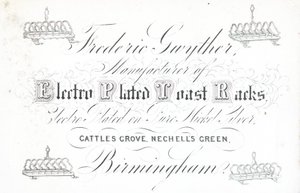 Frederic Gwyther,
Manufacturer of
Electro Plated Toast Racks,
Electro Plated on Pure Nickel Silver,
CATTLES GROVE, NECHELLS GREEN,
Birmingham